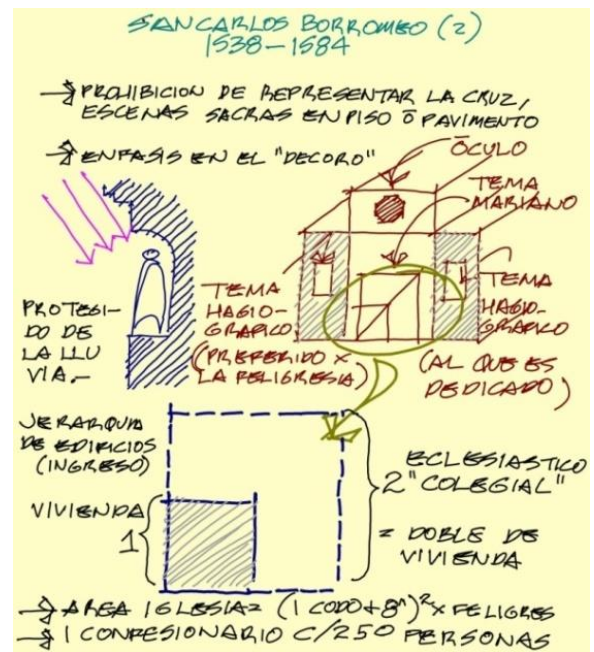 SAN CARLOS BORROMEO (2)
1538-1584
→ PROHIBICION DE REPRESENTAR LA CRUZ,
ESCENAS SACRAS EN PISO Ó PAVIMENTO
→ ENFASIS EN EL "DECORO"
ÓCULO
TEMA
MARIANO
TEMA
HAGIO-
GRAFICO
(PREFERIDO X
LA FELIGRESIA)
TEMA
HAGIO-
GRAFICO
(AL QUE ES
DEDICADO)
PROTEGI-
DO DE
LA LLU
VIA.-
JERARQUIA
DE EDIFICIOS
(INGRESO)
VIVIENDA
1
ECLESIASTICO
2 "COLEGIAL"
= DOBLE DE
VIVIENDA
→ AREA IGLESIA = (1 CODO + 8")² X FELIGRES
→ 1 CONFESIONARIO C/250 PERSONAS